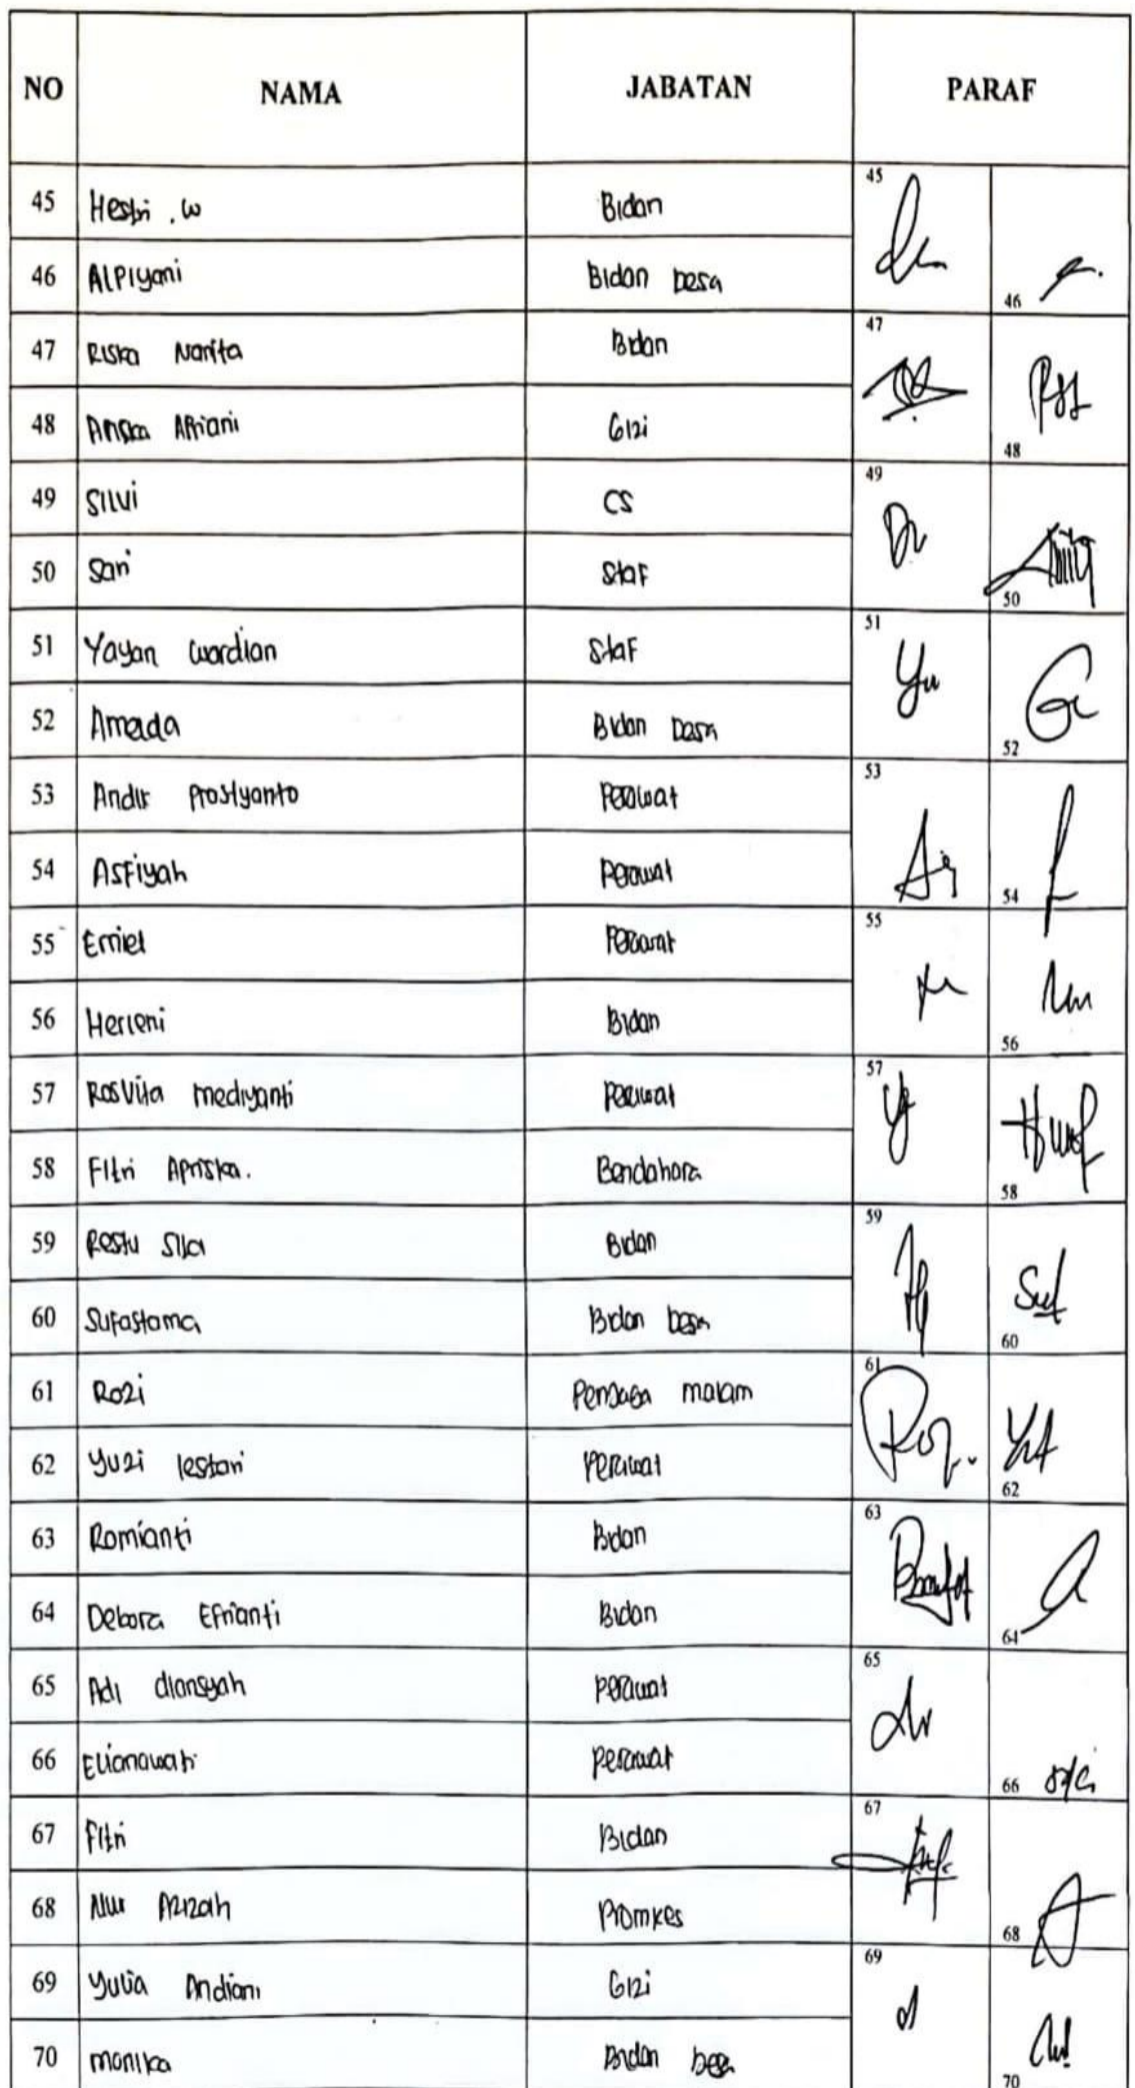 NO NAMA JABATAN PARAF
45 Hestri .w Bidan 45
46 Alpiyani Bidan Desa 46
47 Riska Narita Bidan 47
48 Afriani Gizi 48
49 Silvi CS 49
50 Sari Staf 50
51 Yayan wardian Staf 51
52 Amada Bidan Desa 52
53 Andir Prastyanto Perawat 53
54 Asfiyah Perawat 54
55 Erriel Perawat 55
56 Herleni Bidan 56
57 Rosvita mediyanti Perawat 57
58 Fitri Apriska. Bendahara 58
59 Restu Sila Bidan 59
60 Sufastama Bidan Desa 60
61 Rozi Penjaga malam 61
62 Yuzi lestari Perawat 62
63 Romianti Bidan 63
64 Debora Efrianti Bidan 64
65 Adi diansyah Perawat 65
66 Elianawati Perawat 66
67 Fitri Bidan 67
68 Nur Azizah Promkes 68
69 Yulia Andiani Gizi 69
70 monika Bidan Desa 70